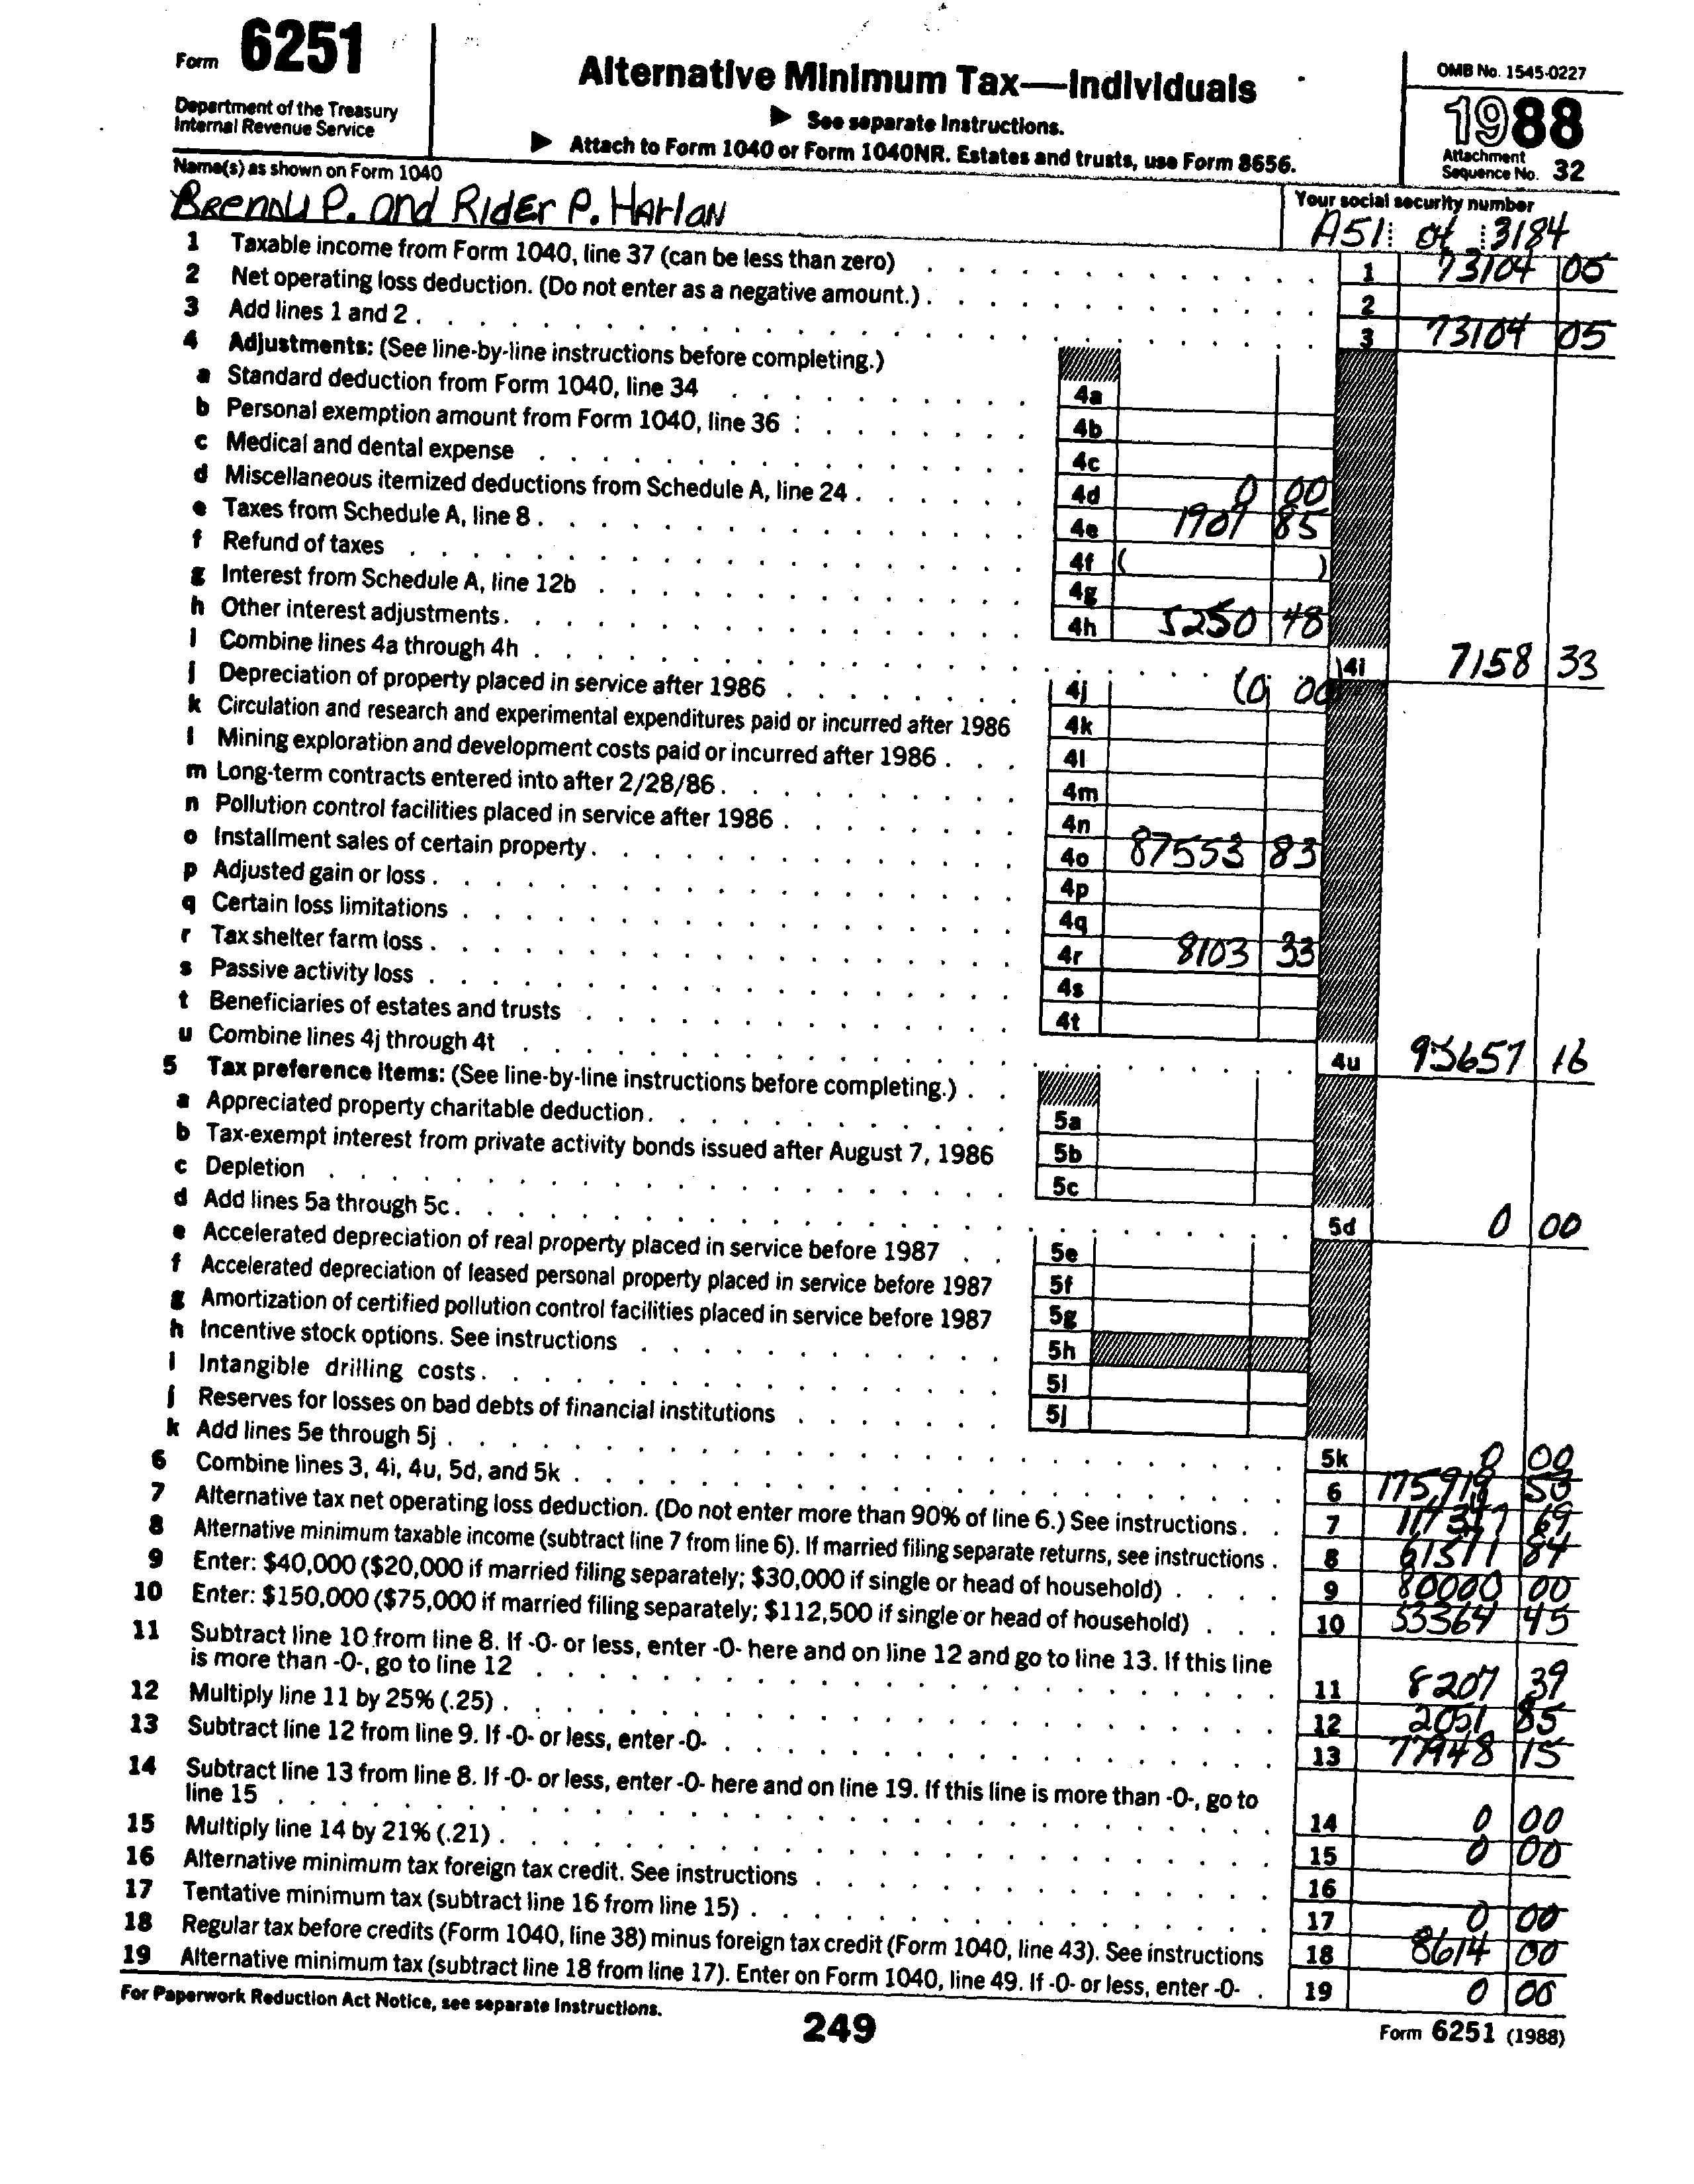 Form 6251
Department of the Treasury
Internal Revenue Service
Alternative Minimum Tax—Individuals
▶ See separate Instructions.
▶ Attach to Form 1040 or Form 1040NR. Estates and trusts, use Form 8656.
OMB No. 1545-0227
1988
Attachment
Sequence No. 32
Name(s) as shown on Form 1040
P. and Rider P. Harlan
Your social security number
A51 04 3184
1 Taxable income from Form 1040, line 37 (can be less than zero) 1 73104 05
2 Net operating loss deduction. (Do not enter as a negative amount.) 2
3 Add lines 1 and 2 3 73104 05
4 Adjustments: (See line-by-line instructions before completing.)
a Standard deduction from Form 1040, line 34 4a
b Personal exemption amount from Form 1040, line 36 4b
c Medical and dental expense 4c
d Miscellaneous itemized deductions from Schedule A, line 24 4d 0 00
e Taxes from Schedule A, line 8 4e 1907 85
f Refund of taxes 4f ( )
g Interest from Schedule A, line 12b 4g
h Other interest adjustments 4h 5250 48
i Combine lines 4a through 4h 4i 7158 33
j Depreciation of property placed in service after 1986 4j (0 00
k Circulation and research and experimental expenditures paid or incurred after 1986 4k
l Mining exploration and development costs paid or incurred after 1986 4l
m Long-term contracts entered into after 2/28/86 4m
n Pollution control facilities placed in service after 1986 4n
o Installment sales of certain property 4o 87553 83
p Adjusted gain or loss 4p
q Certain loss limitations 4q
r Tax shelter farm loss 4r 8103 33
s Passive activity loss 4s
t Beneficiaries of estates and trusts 4t
u Combine lines 4j through 4t 4u 95657 16
5 Tax preference items: (See line-by-line instructions before completing.)
a Appreciated property charitable deduction 5a
b Tax-exempt interest from private activity bonds issued after August 7, 1986 5b
c Depletion 5c
d Add lines 5a through 5c 5d 0 00
e Accelerated depreciation of real property placed in service before 1987 5e
f Accelerated depreciation of leased personal property placed in service before 1987 5f
g Amortization of certified pollution control facilities placed in service before 1987 5g
h Incentive stock options. See instructions 5h
i Intangible drilling costs 5i
j Reserves for losses on bad debts of financial institutions 5j
k Add lines 5e through 5j 5k 0 00
6 Combine lines 3, 4i, 4u, 5d, and 5k 6
7 Alternative tax net operating loss deduction. (Do not enter more than 90% of line 6.) See instructions 7
8 Alternative minimum taxable income (subtract line 7 from line 6). If married filing separate returns, see instructions 8 61571 84
9 Enter: $40,000 ($20,000 if married filing separately; $30,000 if single or head of household) 9 80000 00
10 Enter: $150,000 ($75,000 if married filing separately; $112,500 if single or head of household) 10 53364 45
11 Subtract line 10 from line 8. If -0- or less, enter -0- here and on line 12 and go to line 13. If this line
is more than -0-, go to line 12 11 8207 39
12 Multiply line 11 by 25% (.25) 12 2051 85
13 Subtract line 12 from line 9. If -0- or less, enter -0- 13 77948 15
14 Subtract line 13 from line 8. If -0- or less, enter -0- here and on line 19. If this line is more than -0-, go to
line 15 14 0 00
15 Multiply line 14 by 21% (.21) 15 0 00
16 Alternative minimum tax foreign tax credit. See instructions 16
17 Tentative minimum tax (subtract line 16 from line 15) 17 0 00
18 Regular tax before credits (Form 1040, line 38) minus foreign tax credit (Form 1040, line 43). See instructions 18 8614 00
19 Alternative minimum tax (subtract line 18 from line 17). Enter on Form 1040, line 49. If -0- or less, enter -0- 19 0 00
For Paperwork Reduction Act Notice, see separate Instructions.
249
Form 6251 (1988)